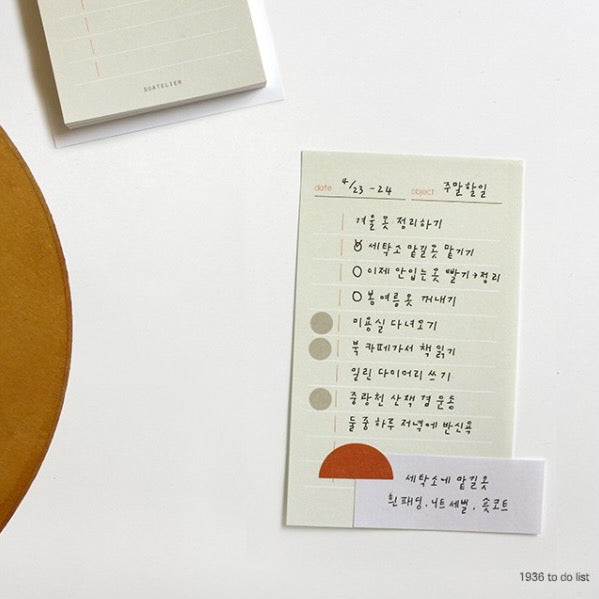 SUATELIER
date 4/23 - 24 object 주말할일
겨울 옷 정리하기
세탁소 맡길옷 맡기기
이제 안입는옷 빨기→정리
봄 여름옷 꺼내기
미용실 다녀오기
북카페가서 책읽기
밀린 다이어리 쓰기
중랑천 산책 겸 운동
둘 중 하루 저녁에 반신욕
세탁소에 맡길 옷
흰패딩, 니트 세벌, 숏코트
1936 to do list